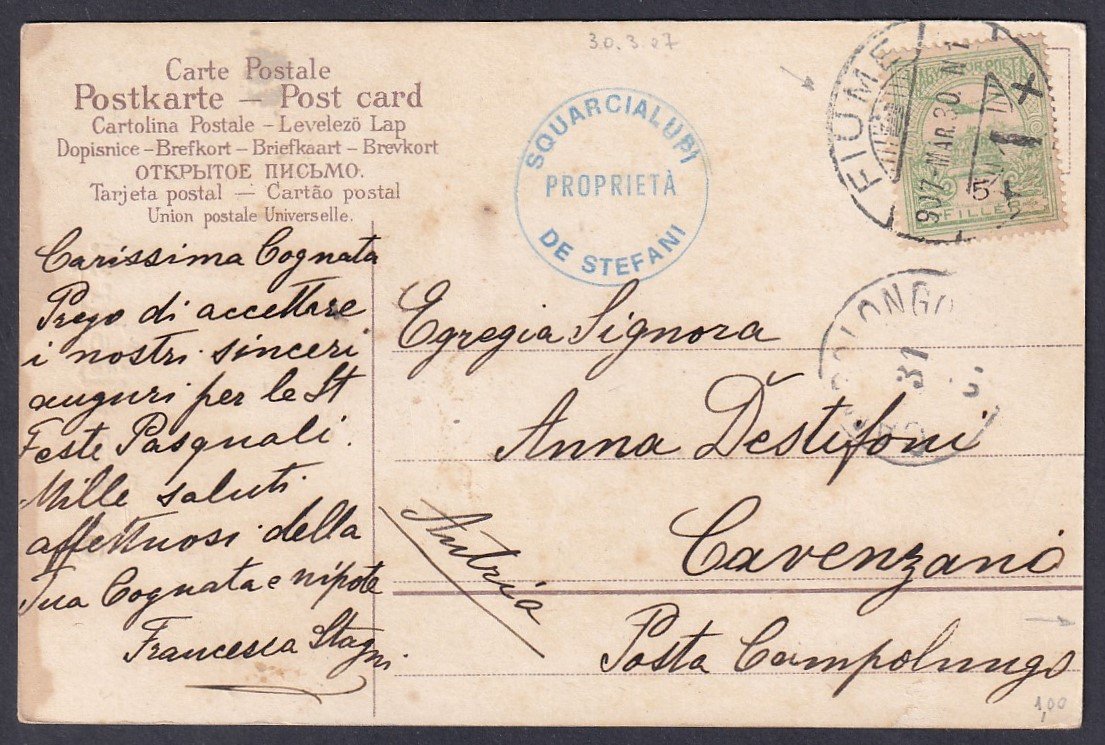 30.3.07
Carte Postale
Postkarte – Post card
Cartolina Postale – Levelező Lap
Dopisnice – Brefkort – Briefkaart – Brevkort
ОТКРЫТОЕ ПИСЬМО.
Tarjeta postal — Cartão postal
Union postale Universelle.
SQUARCIALUPI
PROPRIETÀ
DE STEFANI
FIUME
907-MAR.30. N1
5
FILLÉR
Carissima Cognata
Prego di accettare
i nostri sinceri
auguri per le St
Feste Pasquali.
Mille saluti
affettuosi della
sua Cognata e nipote
Francesca Stagni
31
Egregia Signora
Anna Destefoni
Cavenzano
Autria
Posta Campolungo
1,00